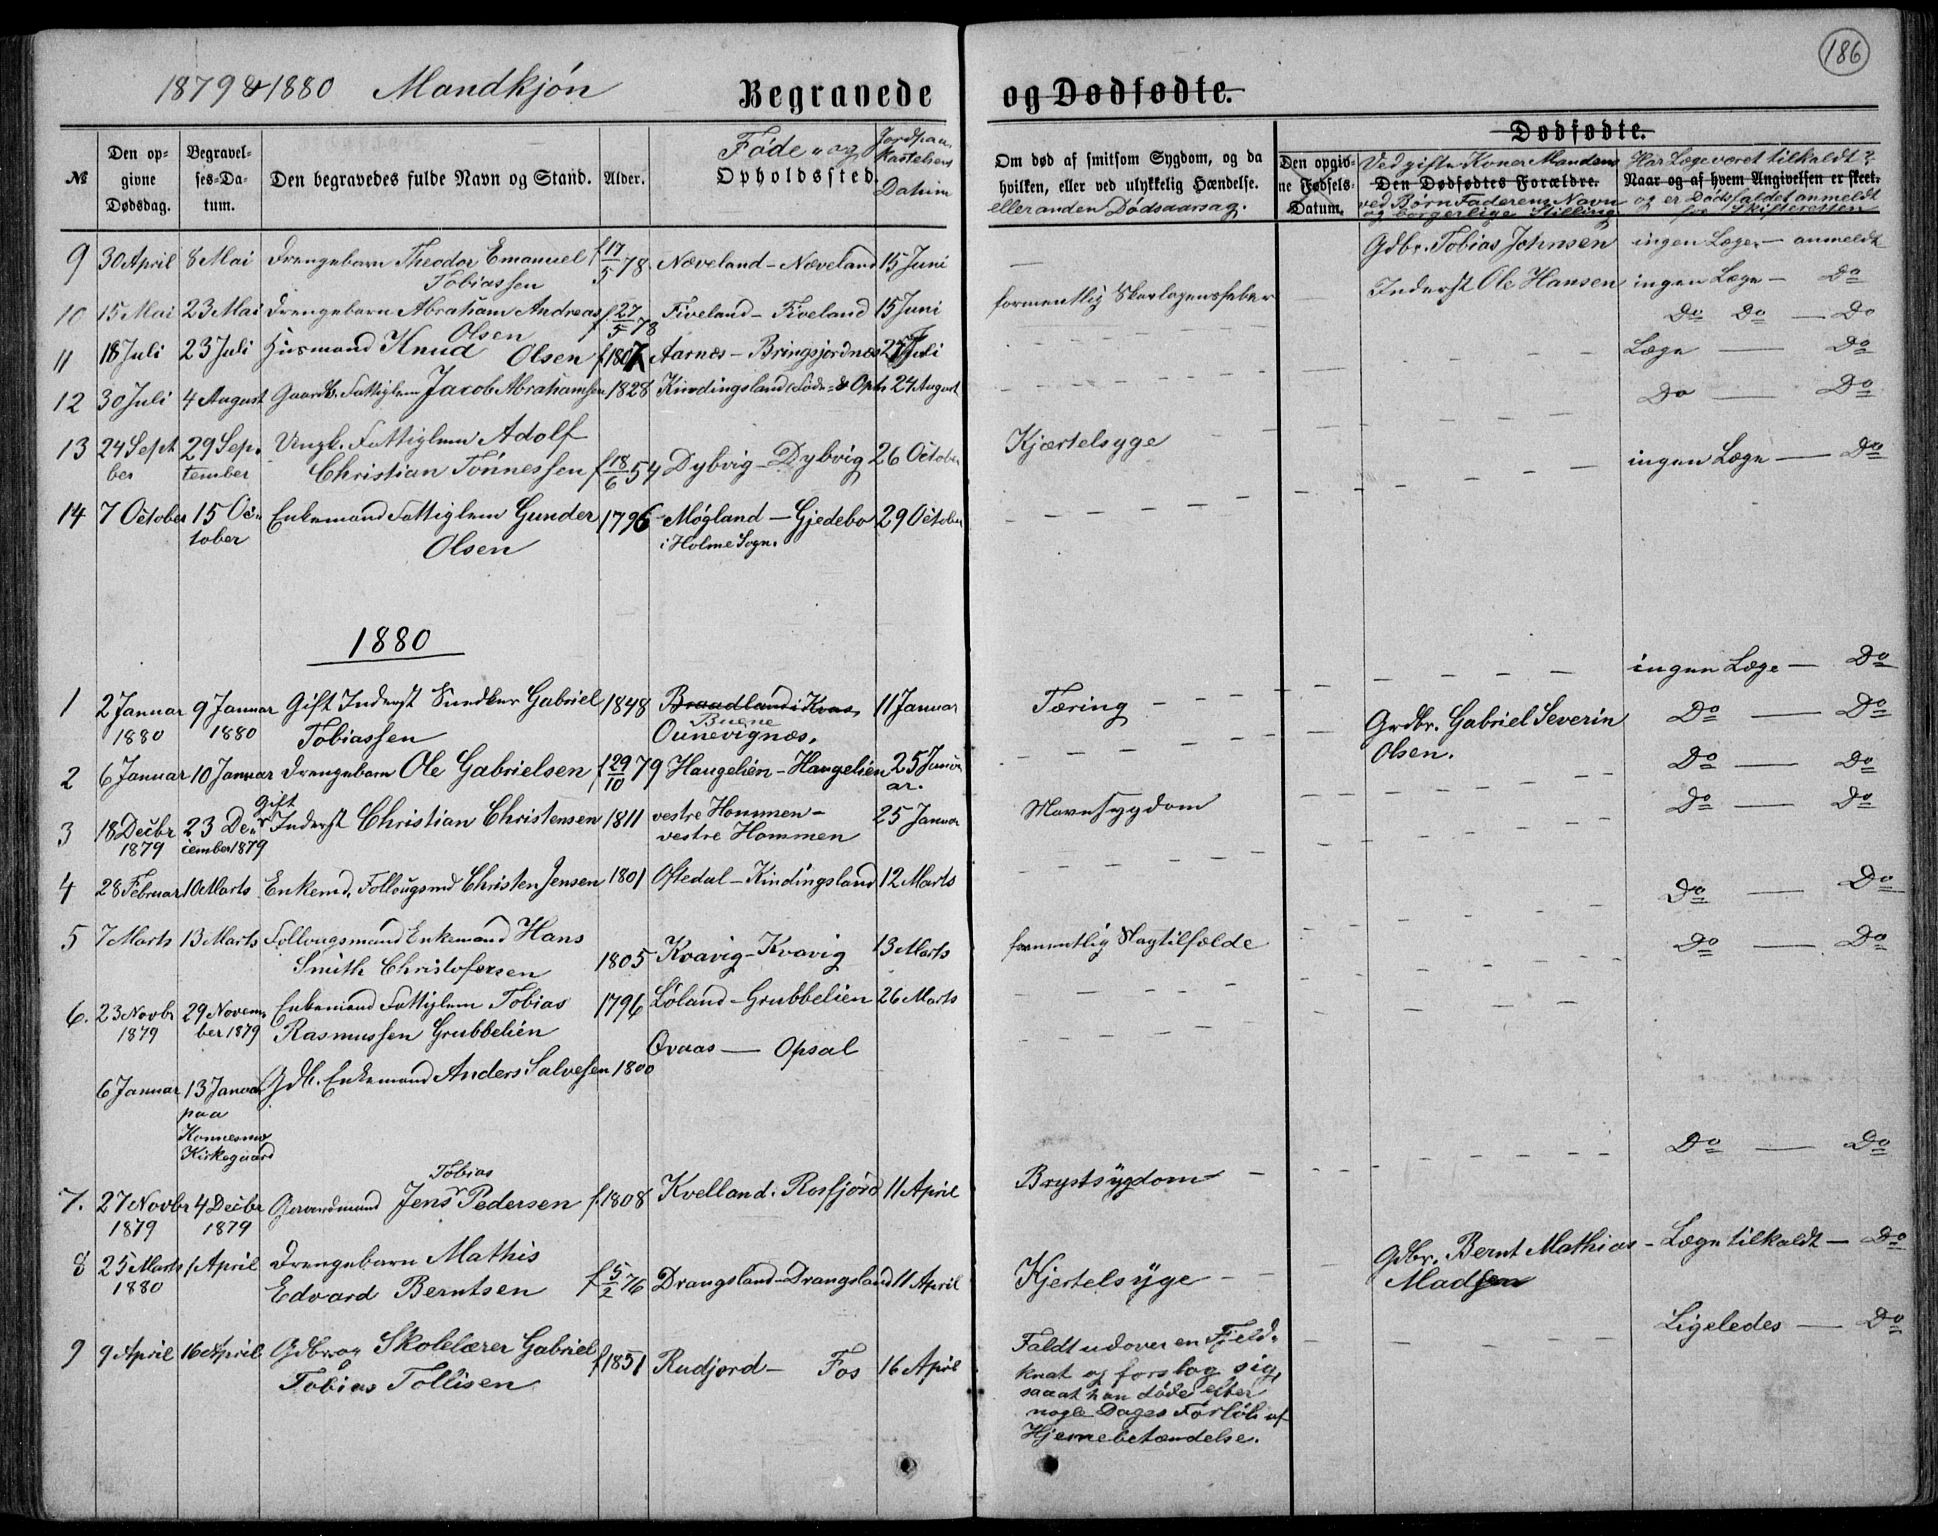 186
1879 & 1880 Mandkjön Begravede og Dødfødte.
№
Den opgivne Dødsdag.
Begravelses-Datum.
Den begravedes fulde Navn og Stand.
Alder.
Føde- og Opholdssted.
Jordpaakastelsens Datum
Om død af smitsom Sygdom, og da hvilken, eller ved ulykkelig Hændelse.
eller anden Dødsaarsag.
Den opgivne Fødsels-Datum.
Dødfødte.
Ved gifte Koner Mandens
Den Dødfødtes Forældre.
ved Børn Faderens Navn og borgerlige Stilling
Har Læge været tilkaldt?
Naar og af hvem Angivelsen er skeet.
og er Dødsfaldet anmeldt for Skifteretten
9 30 April 8 Mai Drengebarn Theodor Emanuel Tobiassen f 17/5 78. Næveland - Næveland 15 Juni — Gdbr. Tobias Johnsen ingen Læge - anmeldt
10 15 Mai 23 Mai Drengebarn Abraham Andreas Olsen f. 27/5 78 Fiveland - Fiveland 15 Juni formentlig Skarlagensfeber Inderst Ole Hansen ingen Læge - Do
11 18 Juli 23 Juli Husmand Knud Olsen f 1807 Aarnes - Bringsjordnæs 27 Juli Do Do — Do
12 30 Juli 4 August Gaardb. Fattiglem Jacob Abrahamsen 1828 Kindingsland (Føde- & Oph. 24 August Læge — Do
Do — Do
13 24 Septber 29 September Ungk. Fattiglem Adolf Christian Tönnessen f 18/6 54 Dybvig - Dybvig 26 October Kjærtelsyge
ingen Læge — Do
14 7 October 15 October Enkemand Fattiglem Gunder Olsen 1796 Møgland - Gjedebo i Holme Sogn. 29 October
1880
ingen Læge — Do
1 2 Januar 1880 9 Januar 1880 Gift Inderst Gabriel Tobiassen 1848 Braadland i Kvas Buene Ounevignæs. 11 Januar Tæring Do — Do
2 6 Januar 10 Januar Drengebarn Ole Gabrielsen f 29/10 79 Haugelien - Haugelien 25 Januar. Grdbr. Gabriel Severin Olsen. Do — Do
3 18 Decbr 1879 23 December 1879 gift Inderst Christian Christensen 1811 vestre Hommen - vestre Hommen 25 Januar Mavesygdom Do — Do
4 28 Februar 10 Marts Enkemd. Føllougsmd Christen Jensen 1801 Oftedal - Kindingsland 12 Marts Do — Do
5 7 Marts 13 Marts Føllougsmand Enkemand Hans Smith Christofersen 1805 Kvavig - Kvavig 13 Marts formentlig Slagtilfælde Do — Do
6. 23 Novbr 1879 29 November 1879 Enkemand Fattiglem Tobias Rasmussen Grubbelien 1796 Löland - Grubbelien 26 Marts
6 Januar 13 Januar paa Konnesmo Kirkegaard Gdb. Enkemand Anders Salvesen 1800 Ovaas — Opsal
Do — Do
7. 27 Novbr 1879 4 Decbr 1879 Tobias Jens Pedersen f. 1808 Kvelland. Rosfjord 11 April Brystsygdom
8 25 Marts 1880 1 April Drengebarn Mathis Edvard Berntsen f 5/2 76 Drangsland - Drangsland 11 April Kjertelsyge Gdbr. Bernt Mathias Madsen Læge tilkaldt - Do
9 9 April 16 April Gdbr og Skolelærer Gabriel Tobias Tollisen f 1851 Rudjord - Fos 16 April Ligeledes — Do
Faldt udover en Fjeldknat og forslog sig,
saa at han døde efter
nogle Dages Forløb af
Hjernebetændelse.